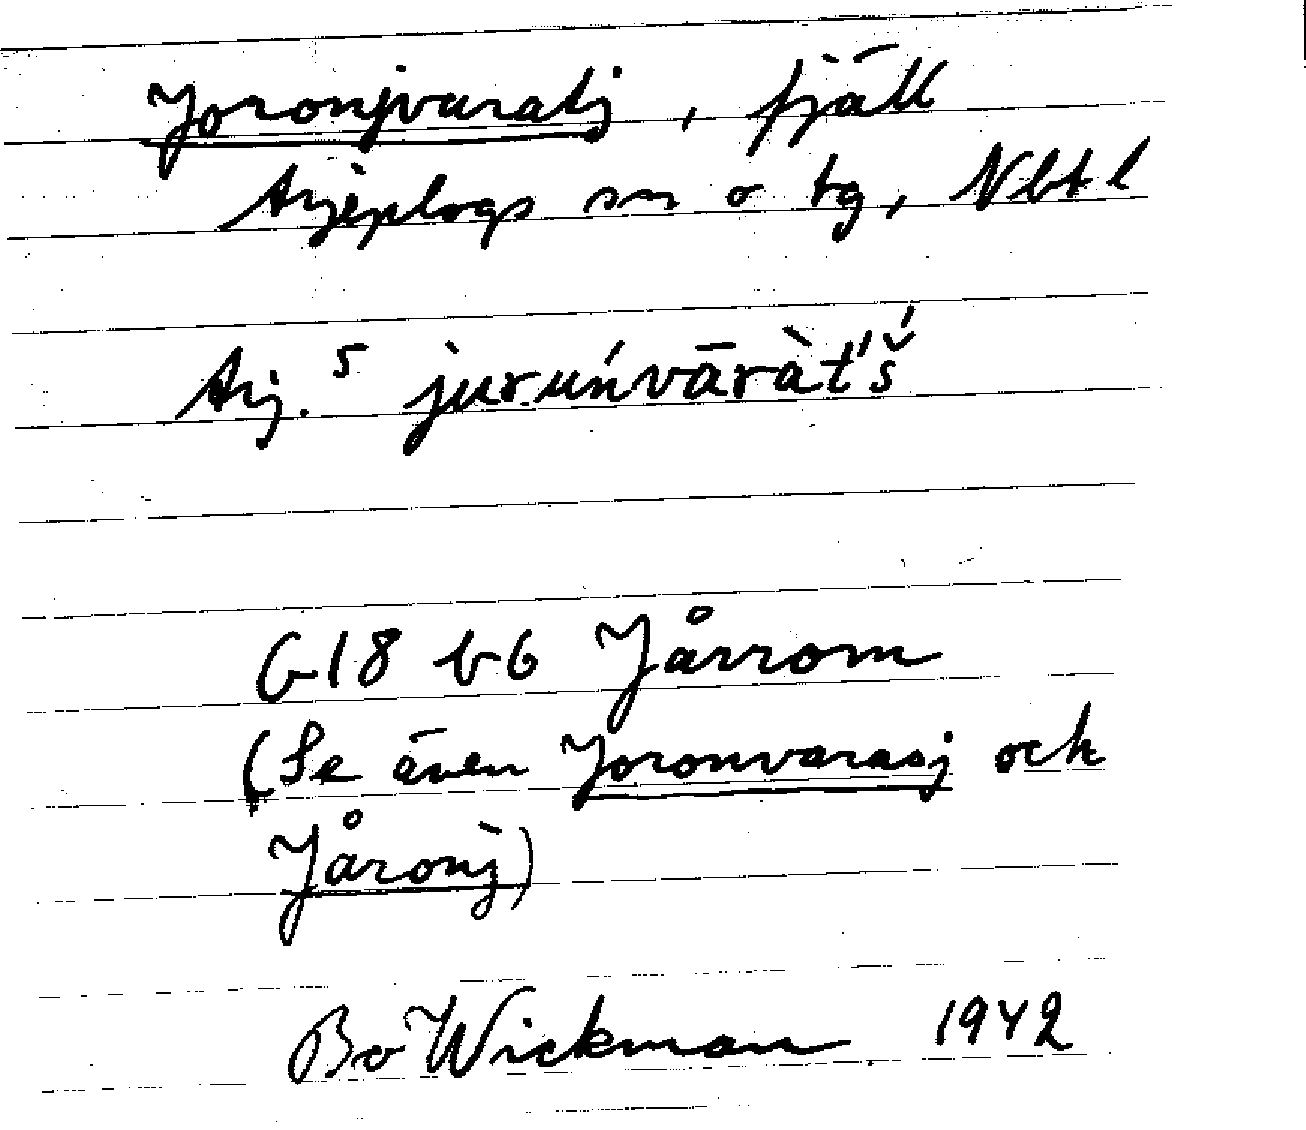 Joronjvaratj, fjäll
Arjeplogs sn o tg, Nbt l
Arj. 5 juruńvāràt́'š́
G18 b6 Jårrom
(Se även Joronvarasj och
Jåronj)
Bo Wickman 1942